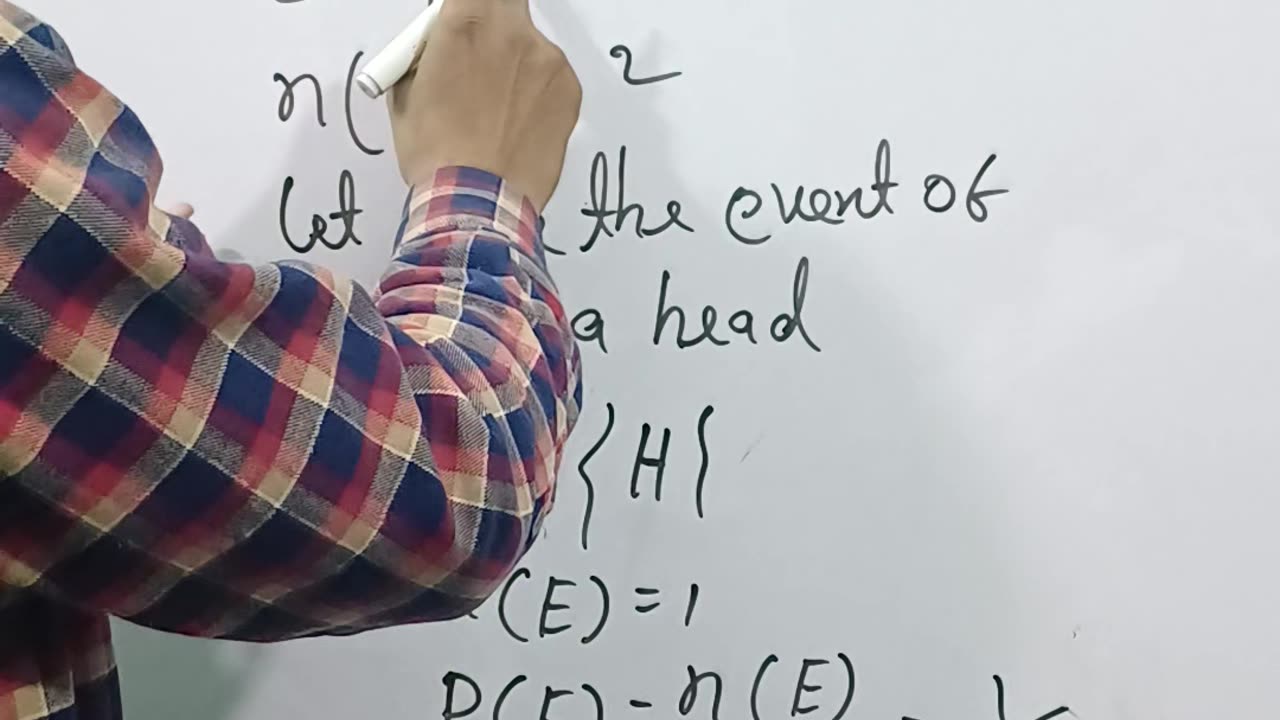 n( 2
Let the event of
a head
{H}
(E) = 1
P(E) = n(E)